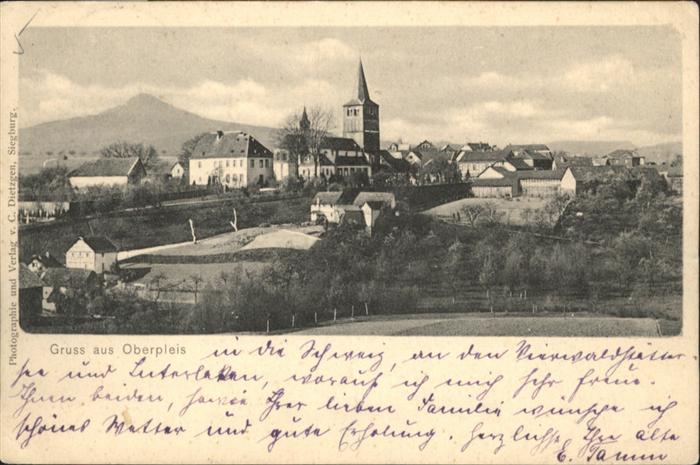 Photographie und Verlag v. C. Dietzgen, Siegburg.
Gruss aus Oberpleis
in die Schweiz, an den Vierwaldstätter
see und Interlaken, worauf ich mich sehr freue.
Ihnen beiden, sowie Ihrer lieben Familie wünsche ich
schönes Wetter und gute Erholung. Herzlichst Ihre alte
E. Tamm